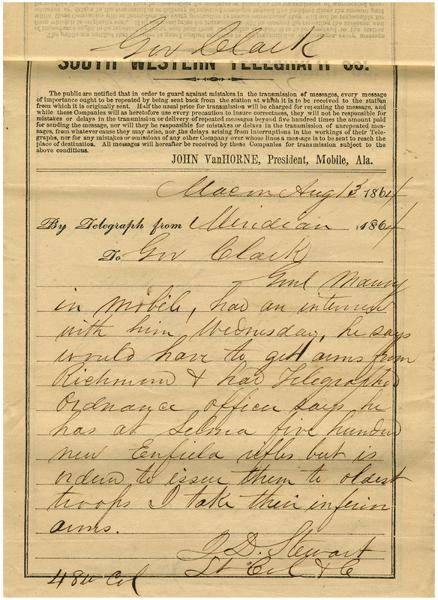 Gov Clark
SOUTH WESTERN TELEGRAPH CO.
The public are notified that in order to guard against mistakes in the transmission of messages, every message
of importance ought to be repeated by being sent back from the station at which it is to be received to the station
from which it is originally sent. Half the usual price for transmission will be charged for repeating the message, and
while these Companies will as heretofore use every precaution to insure correctness, they will not be responsible for
mistakes or delays in the transmission or delivery of repeated messages beyond five hundred times the amount paid
for sending the message, nor will they be responsible for mistakes or delays in the transmission of unrepeated messages,
from whatever cause they may arise, nor for delays arising from interruptions in the workings of their Telegraphs,
nor for any mistakes or omissions of any other Company over whose lines a message is to be sent to reach the
place of destination. All messages will hereafter be received by these Companies for transmission subject to the
above conditions.
JOHN VanHORNE, President, Mobile, Ala.
Macon Aug 13 1864
By Telegraph from Meridian 1864
To Gov Clark
Genl Maury
in Mobile, had an interview
with him, Wednesday, he says
would have to get arms from
Richmond & had Telegraphed
Ordnance officer says he
has at Selma five hundred
new Enfield rifles but is
ordered to issue them to oldest
troops I take their inferior
arms.
T. D. Stewart
Lt Col & C
48 Col